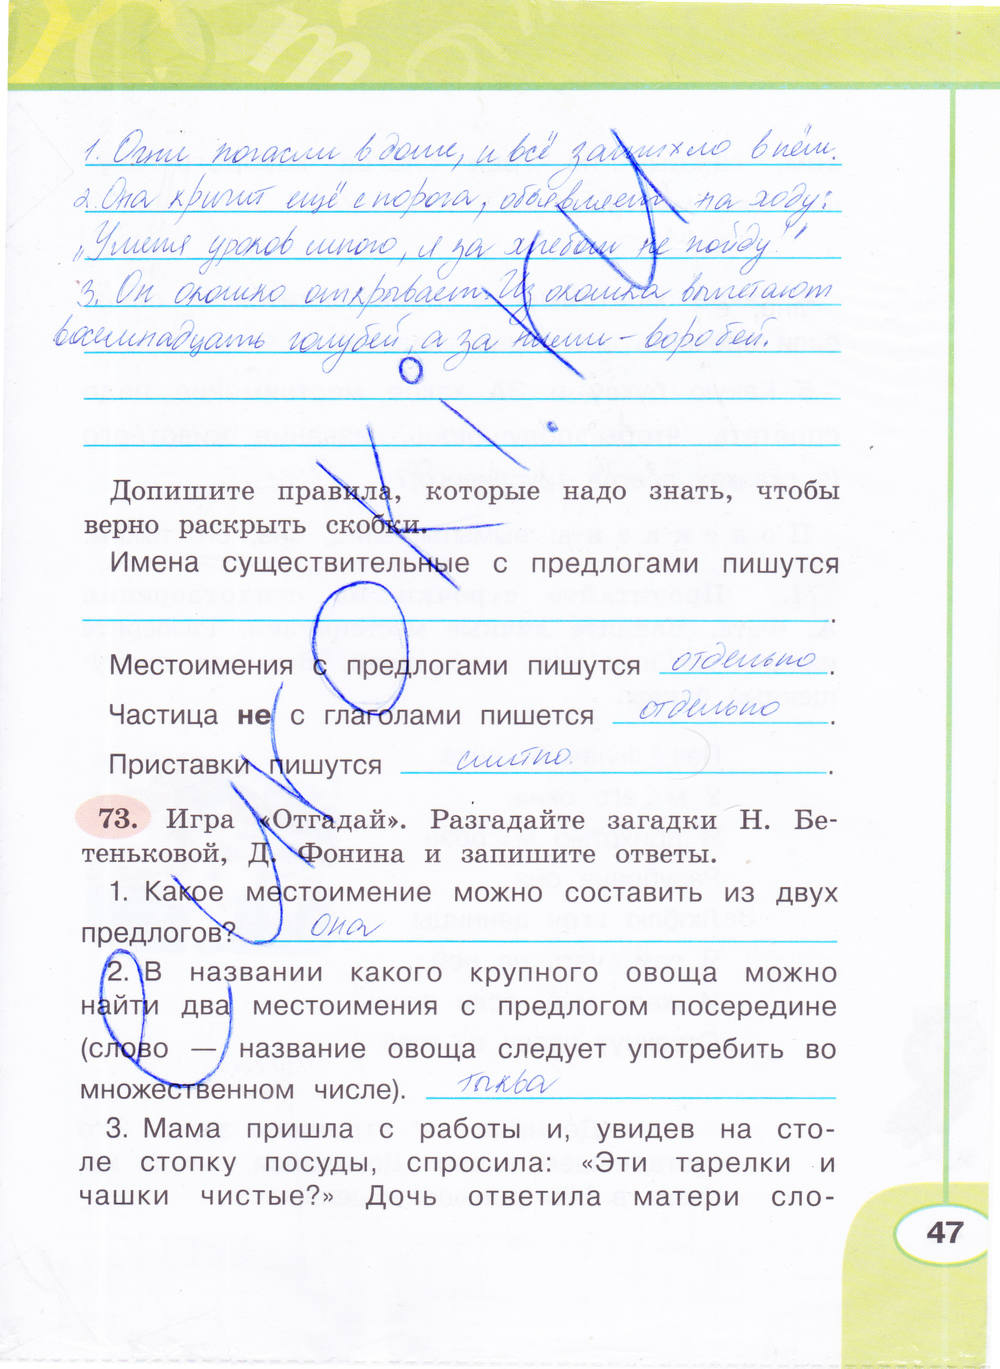 1. Огни погасли в доме, и всё затихло в нём.
2. Она кричит ещё с порога, объявляет на ходу:
„У меня уроков много, я за хлебом не пойду!"
3. Он окошко открывает. Из окошка вылетают
восемнадцать голубей, а за ними – воробей.
Допишите правила, которые надо знать, чтобы
верно раскрыть скобки.
Имена существительные с предлогами пишутся
.
Местоимения с предлогами пишутся отдельно.
Частица не с глаголами пишется отдельно.
Приставки пишутся слитно.
73. Игра «Отгадай». Разгадайте загадки Н. Бе-
теньковой, Д. Фонина и запишите ответы.
1. Какое местоимение можно составить из двух
предлогов? Она
2. В названии какого крупного овоща можно
найти два местоимения с предлогом посередине
(слово — название овоща следует употребить во
множественном числе). тыква
3. Мама пришла с работы и, увидев на сто-
ле стопку посуды, спросила: «Эти тарелки и
чашки чистые?» Дочь ответила матери сло-
47